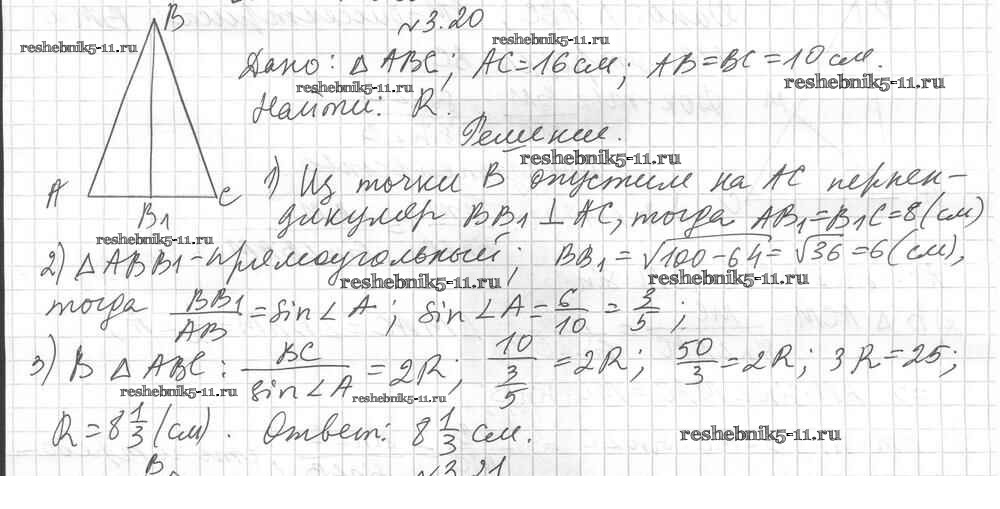 B
№3.20
reshebnik5-11.ru
reshebnik5-11.ru
Дано: △ABC; AC=16см; AB=BC=10см.
reshebnik5-11.ru
reshebnik5-11.ru
Найти: R.
Решение.
reshebnik5-11.ru
1) Из точки B опустим на AC перпен-
A
C
B₁
дикуляр BB₁⊥AC, тогда AB₁=B₁C=8(см)
reshebnik5-11.ru
2) △ABB₁-прямоугольный; BB₁=√(100-64)=√36=6(см),
reshebnik5-11.ru
reshebnik5-11.ru
тогда BB₁/AB=sin∠A; sin∠A=6/10=3/5;
3) В △ABC: BC/sin∠A=2R; 10/(3/5)=2R; 50/3=2R; 3R=25;
reshebnik5-11.ru
reshebnik5-11.ru
R=8 1/3(см). Ответ: 8 1/3 см.
reshebnik5-11.ru
B
№3.21